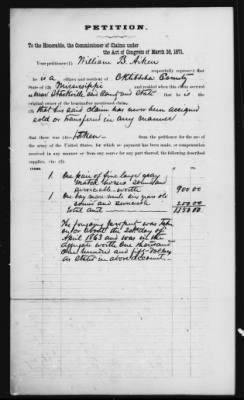 PETITION.
To the Honorable, the Commissioner of Claims under
the Act of Congress of March 3d, 1871.
Your petitioner (1) William B. Aiken
respectfully represent that
he is a citizen and resident of Oktibbeha County
State of (2) Mississippi and resided when this claim accrued
near Starkville said County and State that he is the
original owner of the hereinafter mentioned claim;
that his said claim has never been assigned
sold or transferred in any manner
that there was (4) taken from the petitioner for the use of
the army of the United States, for which no payment has been made, or compensation
received in any manner or from any source for any part thereof, the following described
supplies, to-wit (5)
1 One pair of fine large gray
match horses sound and
serviceable worth 900 00
1 One bay mare mule six years old
sound and serviceable 250.00
Total amt 1150.00
The foregoing property was taken
on or about the day of
April 1863 and was in the
aggregate worth One thousand
One hundred and fifty Dollars
as stated in above account.